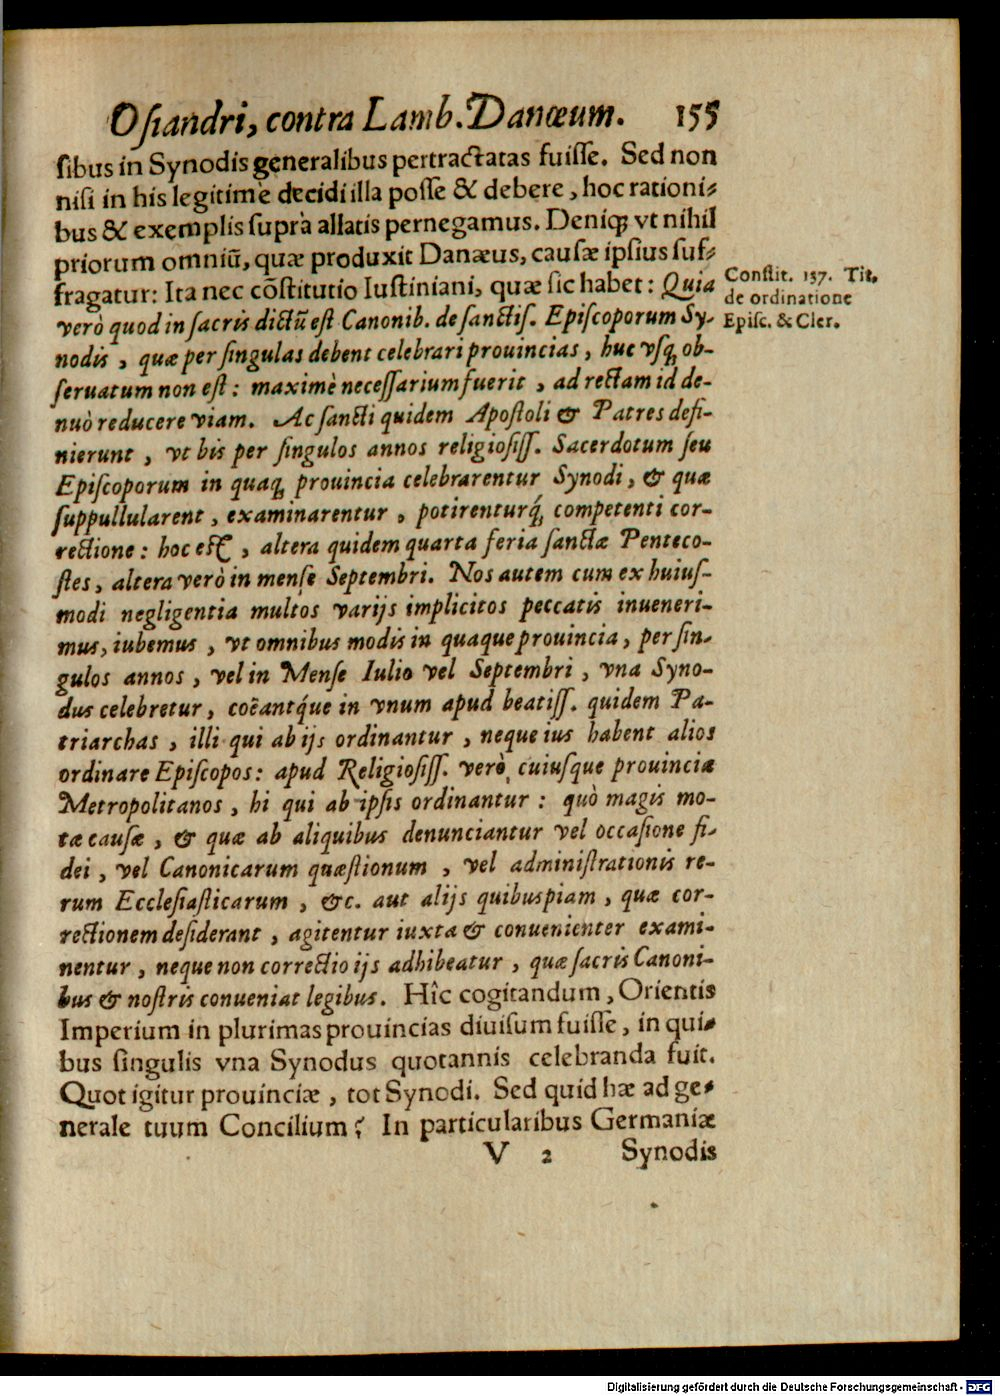 Oſiandri, contra Lamb. Danæum. 155
ſibus in Synodis generalibus pertractatas fuiſſe. Sed non
niſi in his legitimè decidi illa poſſe & debere, hoc rationi-
bus & exemplis ſuprà allatis pernegamus. Deniq; vt nihil
priorum omniũ, quæ produxit Danæus, cauſæ ipſius ſuf-
fragatur: Ita nec cõſtitutio Iuſtiniani, quæ ſic habet: Quia
Conſtit. 137. Tit.
de ordinatione
Epiſc. & Cler.
verò quod in ſacris dictũ eſt Canonib. de ſanctiſ. Epiſcoporum Sy-
nodis, quæ per ſingulas debent celebrari prouincias, huc vſq; ob-
ſeruatum non eſt: maximè neceſſarium fuerit, ad rectam id de-
nuò reducere viam. Ac ſancti quidem Apoſtoli & Patres defi-
nierunt, vt bis per ſingulos annos religioſiſſ. Sacerdotum ſeu
Epiſcoporum in quaq; prouincia celebrarentur Synodi, & quæ
ſuppullularent, examinarentur, potirenturq́; competenti cor-
rectione: hoc eſt, altera quidem quarta feria ſanctæ Penteco-
ſtes, altera verò in menſe Septembri. Nos autem cum ex huiuſ-
modi negligentia multos varijs implicitos peccatis inueneri-
mus, iubemus, vt omnibus modis in quaque prouincia, per ſin-
gulos annos, vel in Menſe Iulio vel Septembri, vna Syno-
dus celebretur, coëantq́ue in vnum apud beatiſſ. quidem Pa-
triarchas, illi qui ab ijs ordinantur, neque ius habent alios
ordinare Epiſcopos: apud Religioſiſſ. verò cuiuſque prouinciæ
Metropolitanos, hi qui ab ipſis ordinantur: quò magis mo-
tæ cauſæ, & quæ ab aliquibus denunciantur vel occaſione fi-
dei, vel Canonicarum quæſtionum, vel adminiſtrationis re-
rum Eccleſiaſticarum, &c. aut alijs quibuspiam, quæ cor-
rectionem deſiderant, agitentur iuxta & conuenienter exami-
nentur, neque non correctio ijs adhibeatur, quæ ſacris Canoni-
bus & noſtris conueniat legibus. Hîc cogitandum, Orientis
Imperium in plurimas prouincias diuiſum fuiſſe, in qui-
bus ſingulis vna Synodus quotannis celebranda fuit.
Quot igitur prouinciæ, tot Synodi. Sed quid hæ ad ge-
nerale tuum Concilium? In particularibus Germaniæ
V 2 Synodis
Digitalisierung gefördert durch die Deutsche Forschungsgemeinschaft - DFG